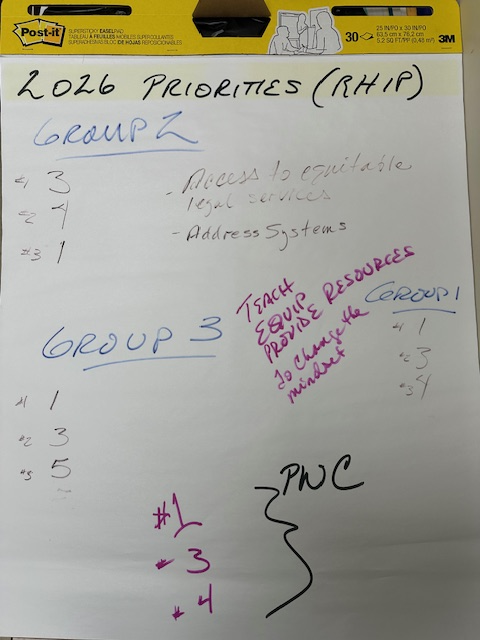 Post-it
SUPERSTICKY EASEL PAD
TABLEAU À FEUILLES MOBILES SUPERCOLLANTES
SUPERADHERENTE BLOC DE HOJAS REPOSICIONABLES
30
25 IN/PO x 30 IN/PO
63.5 cm x 76.2 cm
5.2 SQ.FT/PI² (0.48 m²)
3M
2026 PRIORITIES (RHIP)
GROUP 2
#1 3
#2 4
#3 1
- Access to equitable
legal services
- Address Systems
TEACH
EQUIP
PROVIDE RESOURCES
to change the
mindset
GROUP 1
#1 1
#2 3
#3 4
GROUP 3
#1 1
#2 3
#3 5
PWC
#1
- 3
- 4